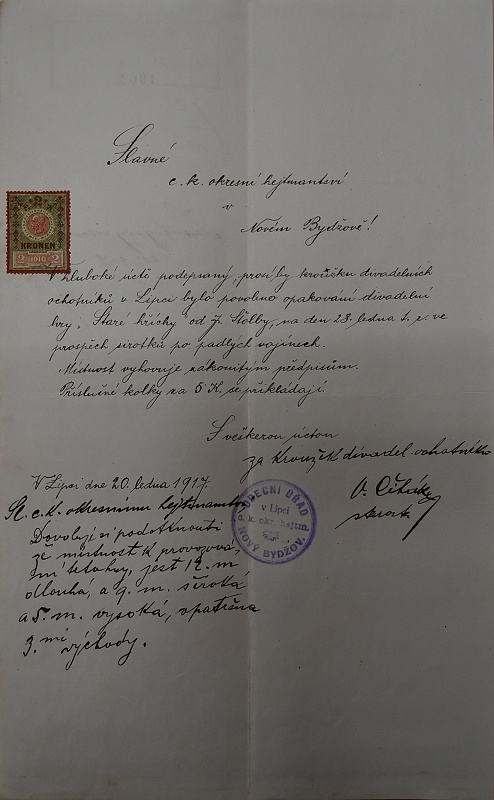 Slavné
c. k. okresní hejtmanství
v
Novém Bydžově!
2
KRONEN
2 1910 2
V hluboké úctě podepsaný, prosí by kroužku divadelních
ochotníků v Lípci bylo povoleno opakování divadelní
hry „Staré hříchy" od J. Štolby, na den 28. ledna t. r. ve
prospěch sirotků po padlých vojínech.
Místnost vyhovuje zákonitým předpisům.
Příslušné kolky za 5 K. se přikládají.
S veškerou úctou
za Kroužek divadel. ochotníků
V Lípci dne 20. ledna 1917.
starosta
OBECNÍ ÚŘAD
v Lipci
c. k. okr. hejtm.
NOVÝ BYDŽOV.
Sl. c. k. okresnímu hejtmanství
Dovoluji si podotknouti
že místnost k provozová-
ní této hry, jest 12. m
dlouhá, a 9. m. široká
a 5. m. vysoká, opatřena
3.mi východy.